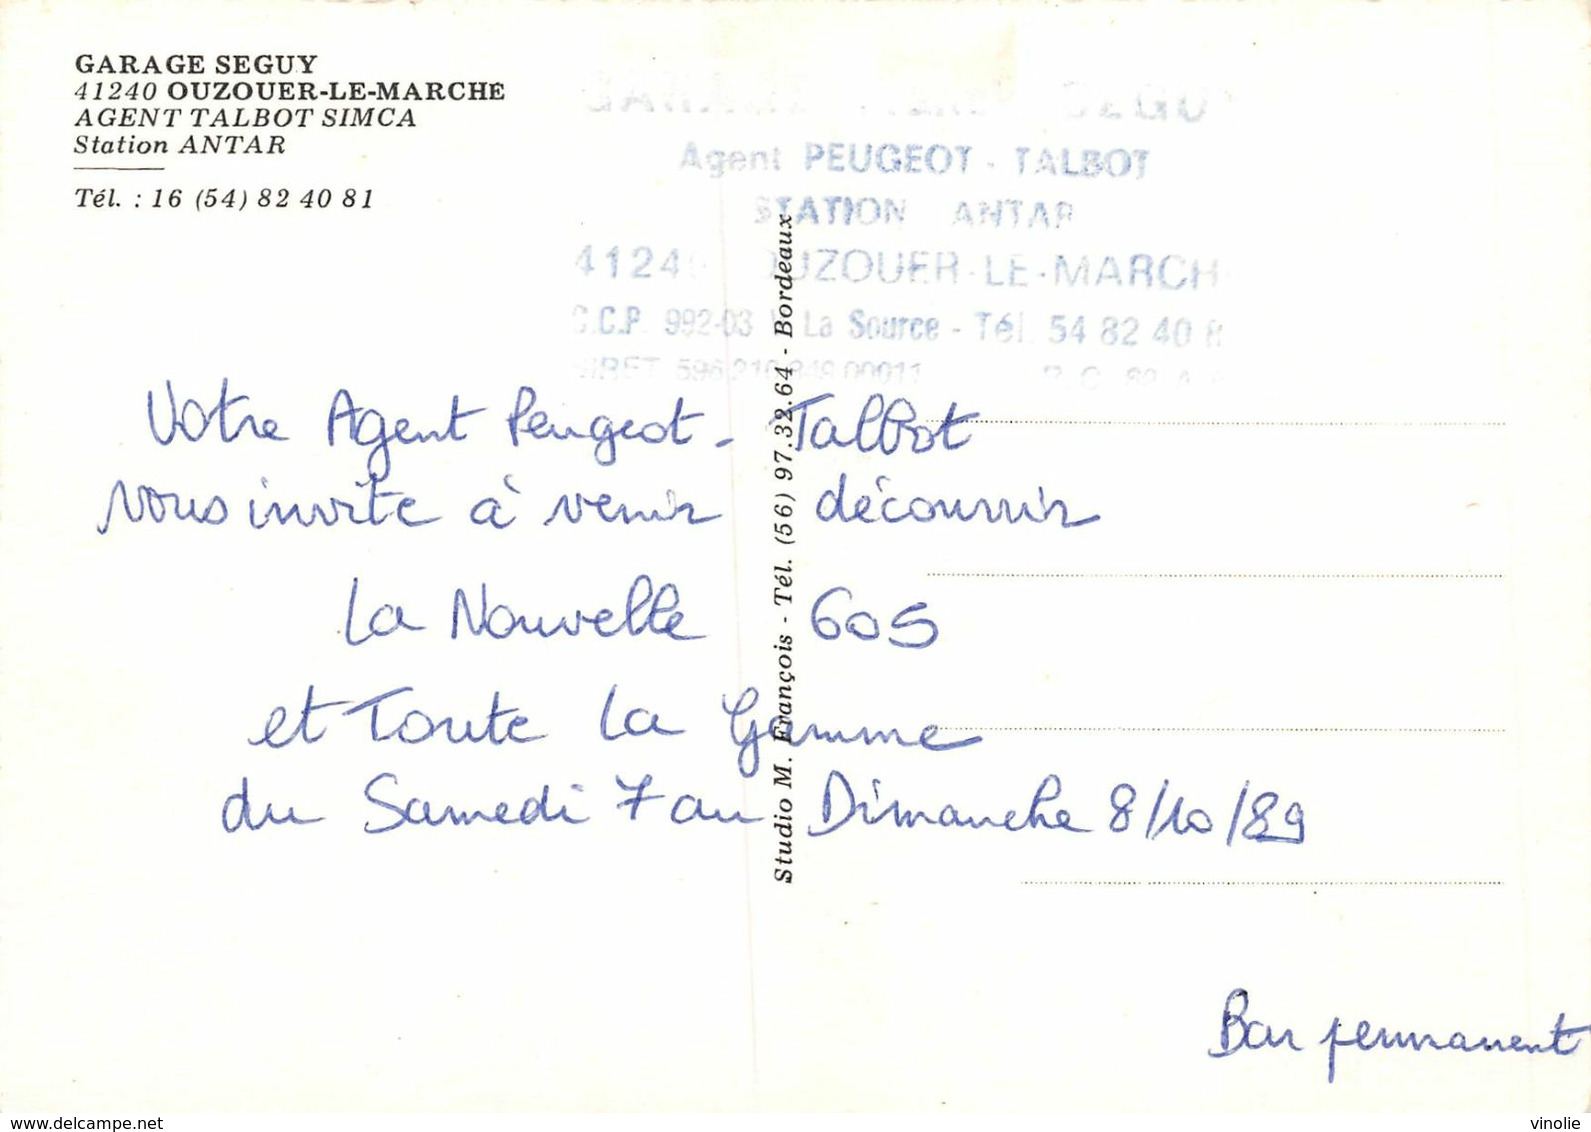 GARAGE SEGUY
41240 OUZOUER-LE-MARCHE
AGENT TALBOT SIMCA
Station ANTAR
Tél. : 16 (54) 82 40 81
Agent PEUGEOT - TALBOT
STATION ANTAR
OUZOUER-LE-MARCH
C.C.P. 992-03 La Source - Tél. 54 82 40 8
SIRET 596 210 849 00011
Studio M. François - Tél. (56) 97.32.64 - Bordeaux
Votre Agent Peugeot - Talbot
vous invite à venir découvrir
La Nouvelle 605
et Toute La Gamme
du Samedi 7 au Dimanche 8/10/89
Bar permanent
www.delcampe.net
vinolie